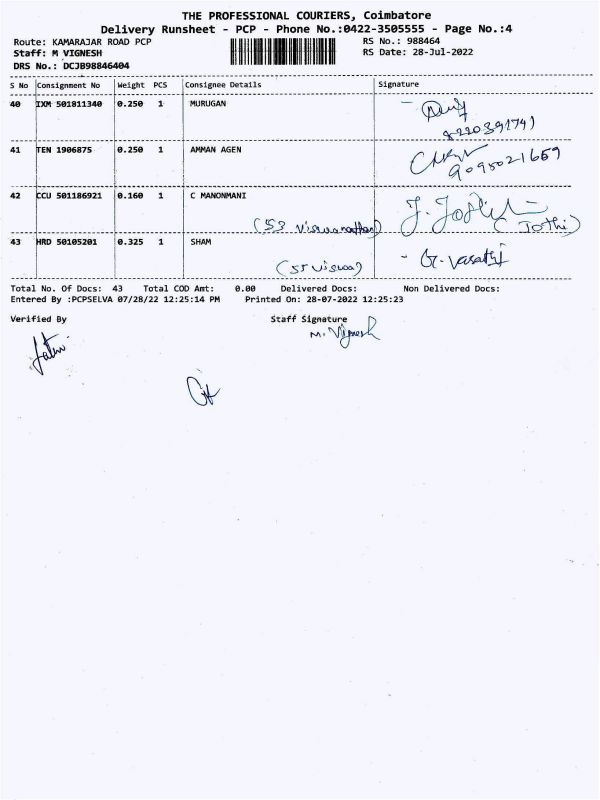 THE PROFESSIONAL COURIERS, Coimbatore
Delivery Runsheet - PCP - Phone No.:0422-3505555 - Page No.:4
Route: KAMARAJAR ROAD PCP RS No.: 988464
Staff: M VIGNESH RS Date: 28-Jul-2022
DRS No.: DCJB98846404
S No Consignment No Weight PCS Consignee Details Signature
40 IXM 501811340 0.250 1 MURUGAN
8220391741
41 TEN 1906875 0.250 1 AMMAN AGEN
9095021659
42 CCU 501186921 0.160 1 C MANONMANI J.
(53 Viswanathan) (Jothi)
43 HRD 50105201 0.325 1 SHAM - G. Vasathi
(55 viswa)
Total No. Of Docs: 43 Total COD Amt: 0.00 Delivered Docs: Non Delivered Docs:
Entered By :PCPSELVA 07/28/22 12:25:14 PM Printed On: 28-07-2022 12:25:23
Verified By Staff Signature
M. Vignesh